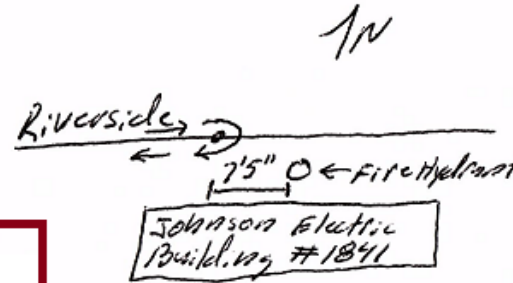 ↑N
Riverside
7'5" ← Fire Hydrant
Johnson Electric
Building #1841